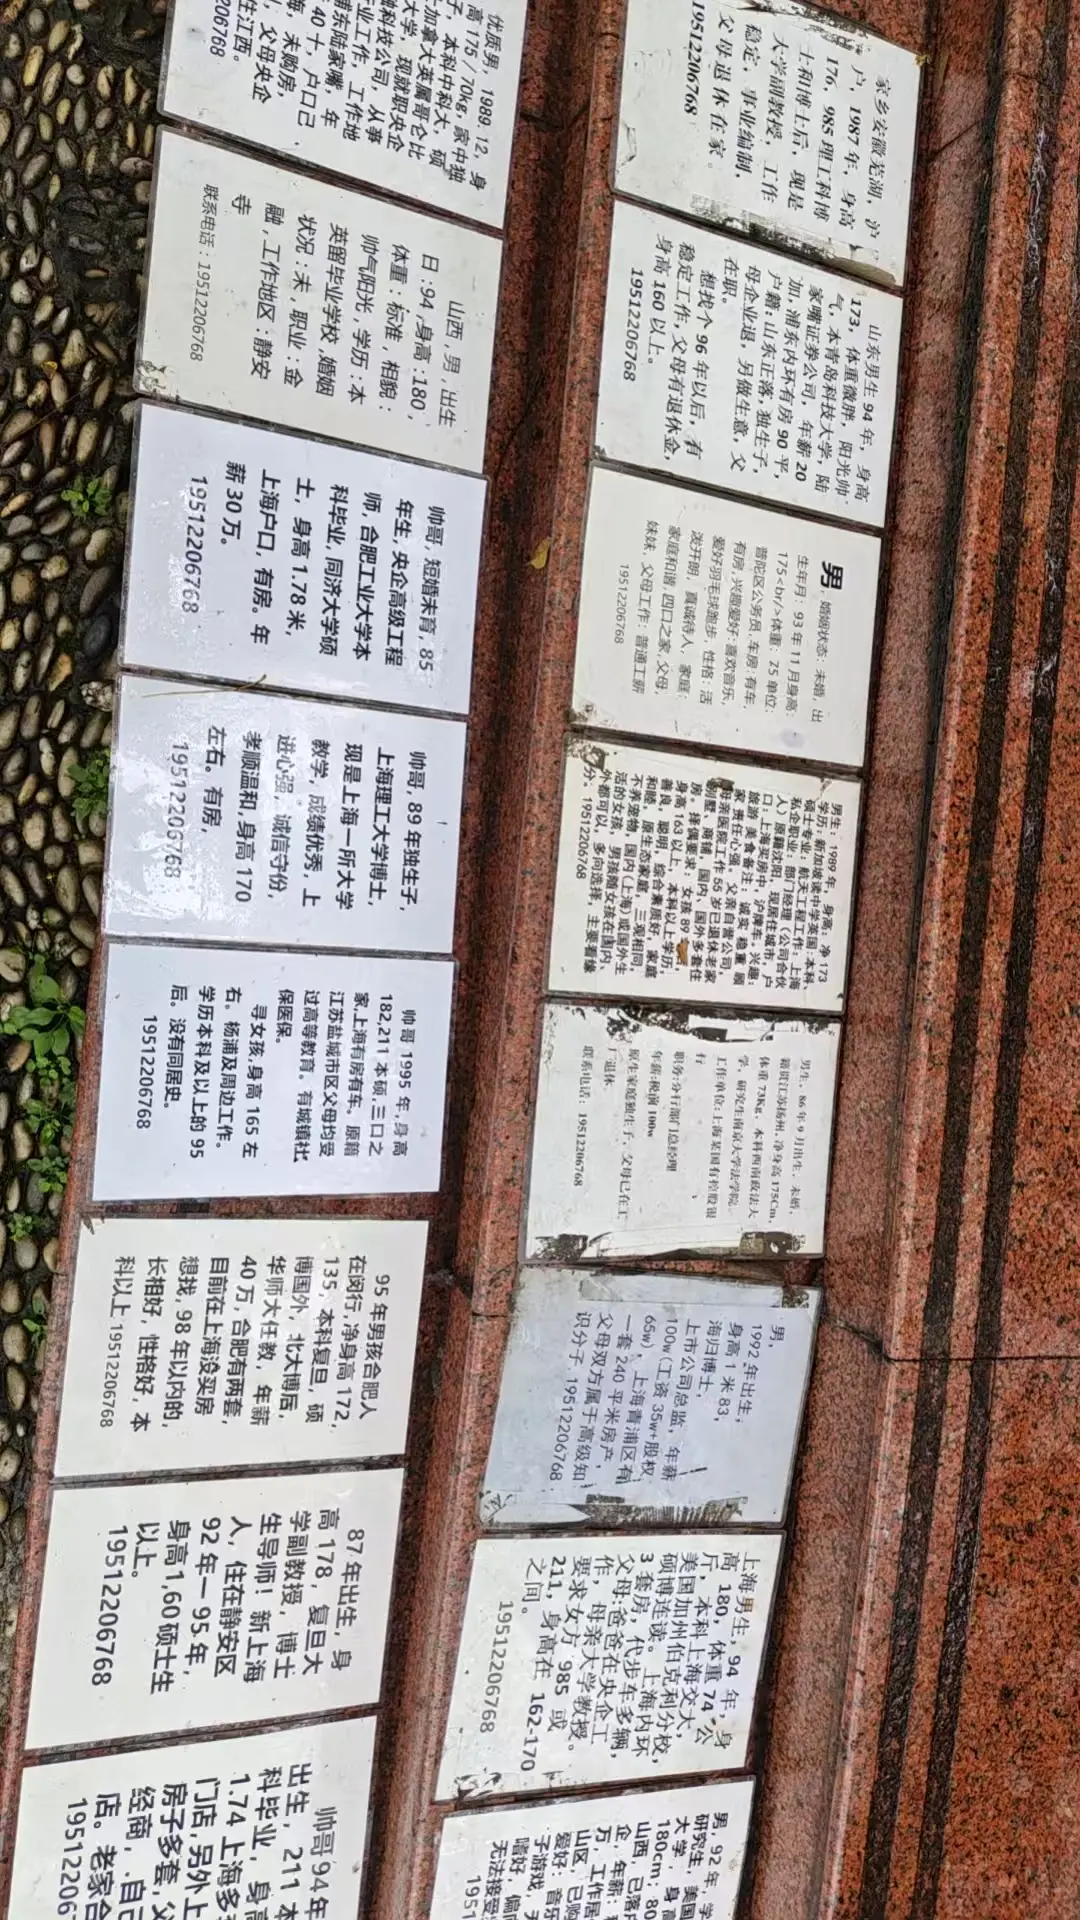 家乡安徽芜湖，沪
户，1987年，身高
176，985理工科博
士和博士后，现是
大学副教授，工作
稳定，事业编制，
父母退休在家。
19512206768
山东男生94年，身高
173，体重微胖，阳光帅
气，本青岛科技大学，陆
家嘴证券公司，年薪20
加，浦东内环有房90平，
户籍：山东正落，独生子，
母企业退，另做生意，父
在职。
想找个96年以后，有
稳定工作，父母有退休金，
身高160以上。
19512206768
男，婚姻状态：未婚，出
生年月：93年11月身高：
175<br/>体重：75单位：
普陀区公务员，车房：有车，
有房，兴趣爱好：喜欢音乐，
爱好羽毛球跑步，性格：活
泼开朗，真诚待人，家庭：
家庭和谐，四口之家，父母，
妹妹，父母工作：普通工薪
19512206768
男生：1989年，身高：净173
学历：新加坡读中学英国：本科、
硕士专业：航天工程工作：上海
私企职业：部门经理（公司合伙
人）原籍沈阳，现居住城市，户
口：上海买房中，沪牌车，兴趣：
旅游 美食备注：诚实 稳重 顾
家 责任心强。父亲自营公司，
母亲医院工作55岁已退休老家
别墅、商铺，国内、国外多套住
房。择偶要求：女孩89
身高，163以上，本科以上学历，
善良，聪明，综合素质好，家庭
和睦，原生态家庭，三观相同，
不养宠物，国内（上海）或国外生
活的女孩，男孩随女孩在国内、
外都可以，多向选择，主要看缘
分。19512206768
男生，86年9月出生，未婚，
籍贯江苏扬州，净身高175Cm，
体重73Kg，本科西南政法大
学，研究生南京大学法学院，
工作单位:上海某国有控股银
行
职务:分行部门总经理
年薪:税前100w
原生家庭独生子，父母已在工
厂退休
联系电话：19512206768
男，
1992年出生，
身高1米83，
海归博士，
上市公司总监，年薪
100w（工资35w+股权
65w），上海青浦区有
一套240平米房产，
父母双方属于高级知
识分子，19512206768
上海男生，94年，身
高，180，体重74，公
斤，本科上海交大，
美国加州伯克利分校，
硕博连读。上海内环
3套房，代步车多辆，
父母:爸爸在央企工
作，母亲大学教授。
要求女方，985或
211，身高在162-170
之间。
19512206768
男，92年，学
研究生，美国
大学，身高
180cm；80
山西，已落户
企，年薪：
万，工作居
山区，已购
爱好：音乐
子游戏，无
嗜好，偏
无法接受
1951
优质男，1989.12，身
高175/70kg，家中独
子，本科中科大，硕
士加拿大英属哥伦比
大学，现就职央企
融科技公司，从事
行业工作，工作地
浦东陆家嘴，年
40十，户口已
海，未购房，
，父母央企
住江西。
206768
山西，男，出生
日：94，身高：180，
体重：标准，相貌：
帅气阳光，学历：本
英留毕业学校，婚姻
状况：未，职业：金
融，工作地区：静安
寺
联系电话：19512206768
帅哥，短婚未育，85
年生，央企高级工程
师，合肥工业大学本
科毕业，同济大学硕
士，身高1.78米，
上海户口，有房。年
薪30万。
19512206768
帅哥，89年独生子，
上海理工大学博士，
现是上海一所大学
教学，成绩优秀，上
进心强，诚信守份，
孝顺温和，身高170
左右。有房，
19512206768
帅哥1995年，身高
182,211本硕，三口之
家，上海有房有车。原籍
江苏盐城市区父母均受
过高等教育。有城镇社
保医保。
寻女孩，身高165左
右。杨浦及周边工作。
学历本科及以上的95
后。没有同居史。
19512206768
95年男孩合肥人
在闵行，净身高172，
135，本科复旦，硕
博国外，北大博后，
华师大任教，年薪
40万，合肥有两套，
目前在上海没买房
想找，98年以内的，
长相好，性格好，本
科以上19512206768
87年出生，身
高178，复旦大
学副教授，博士
生导师！新上海
人，住在静安区
92年—95年，
身高1,60硕士生
以上。
19512206768
帅哥94年
出生，211本
科毕业，身高
1.74上海多
门店，另外上
房子多套，父
经商，.自己
店。老家合
1951220676